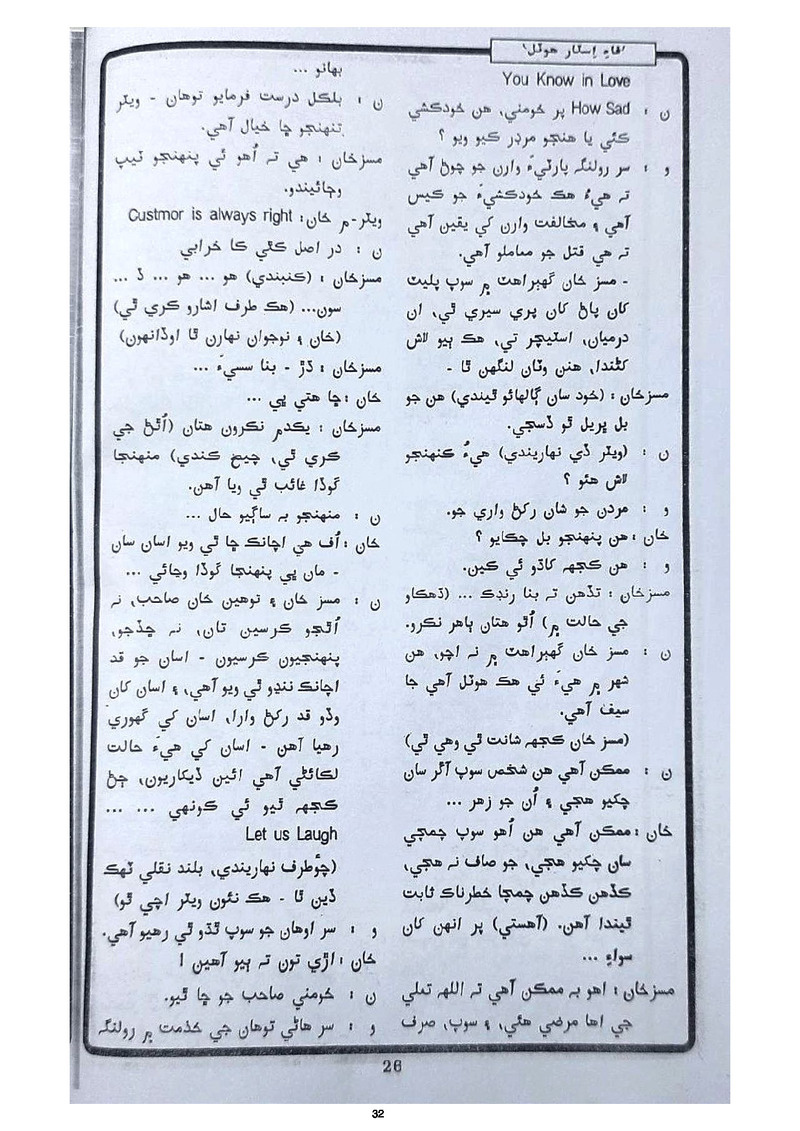 'فاءِ اِسٽار هوٽل'
You Know in Love
ن : How Sad پر خومني، هن خودڪشي
ڪئي يا هنجو مرڊر ڪيو ويو ؟
و : سر رولنگ پارٽيءَ وارن جو چوڻ آهي
ته هيءُ هڪ خودڪشيءَ جو ڪيس
آهي ۽ مخالفت وارن کي يقين آهي
ته هي قتل جو معاملو آهي.
- مسز خان گهبراهٽ ۾ سوپ پليٽ
کان پاڻ کان پري سيري ٿي، ان
درميان، اسٽيچر تي، هڪ ٻيو لاش
کڻندا، هنن وٽان لنگهن ٿا -
مسزخان : (خود سان ڳالهائو ٿيندي) هن جو
بل ڀريل ٿو ڏسجي.
ن : (ويٽر ڏي نهاريندي) هيءُ ڪنهنجو
لاش هئو ؟
و : مردن جو شان رکڻ واري جو.
خان : هن پنهنجو بل چڪايو ؟
و : هن ڪجهه کاڌو ئي ڪين.
مسزخان : تڏهن ته بنا رنڊڪ ... (ڌهڪاو
جي حالت ۾) اُٿو هتان ٻاهر نڪرو.
ن : مسز خان گهبراهٽ ۾ نه اچو، هن
شهر ۾ هيءَ ئي هڪ هوٽل آهي جا
سيف آهي.
(مسز خان ڪجهه شانت ٿي وهي ٿي)
ن : ممڪن آهي هن شخص سوپ آڱر سان
چکيو هجي ۽ اُن جو زهر ...
خان : ممڪن آهي هن اُهو سوپ چمچي
سان چکيو هجي، جو صاف نه هجي،
ڪڏهن ڪڏهن چمچا خطرناڪ ثابت
ٿيندا آهن. (آهستي) پر انهن کان
سواءِ ...
مسزخان : اهو به ممڪن آهي ته الله تعليٰ
جي اها مرضي هئي، ۽ سوپ، صرف
بهانو ...
ن : بلڪل درست فرمايو توهان - ويٽر
تنهنجو ڇا خيال آهي.
مسزخان : هي ته اُهو ئي پنهنجو ٽيپ
وڄائيندو.
ويٽر-۾ خان : Custmor is always right
ن : در اصل کٿي کا خرابي
مسزخان : (کنبندي) هو ... هو ... ڏ ...
سون... (هڪ طرف اشارو ڪري ٿي)
(خان ۽ نوجوان نهارن ٿا اوڏانهون)
مسزخان : ڌڙ - بنا سسيءَ ...
خان : ڇا هتي ڀي ...
مسزخان : يڪدم نڪرون هتان (اُٿڻ جي
ڪري ٿي، چيخ ڪندي) منهنجا
گوڏا غائب ٿي ويا آهن.
ن : منهنجو به ساڳيو حال ...
خان : اُف هي اچانڪ ڇا ٿي ويو اسان سان
- مان ڀي پنهنجا گوڏا وڃائي ...
ن : مسز خان ۽ توهين خان صاحب، نه
اُٿجو ڪرسين تان، نہ ڇڏجو،
پنهنجيون ڪرسيون - اسان جو قد
اچانڪ ننڍو ٿي ويو آهي، ۽ اسان کان
وڏو قد رکڻ وارا، اسان کي گهوري
رهيا آهن - اسان کي هيءَ حالت
لڪائڻي آهي ائين ڏيکاريون، ڄڻ
ڪجهه ٿيو ئي ڪونهي ... ...
Let us Laugh
(چؤطرف نهاريندي، بلند نقلي ٽهڪ
ڏين ٿا - هڪ نئون ويٽر اچي ٿو)
و : سر اوهان جو سوپ ٿڌو ٿي رهيو آهي.
خان : اڙي تون ته ٻيو آهين !
ن : خومني صاحب جو ڇا ٿيو.
و : سر هاڻي توهان جي خذمت ۾ رولنگ
26
32